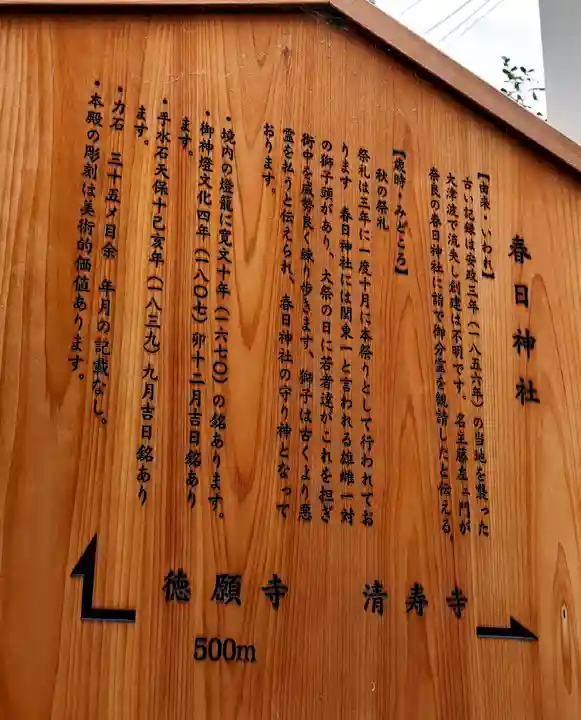 春日神社
【由来・いわれ】
古い記録は安政三年（一八五六年）の当地を襲った
大津波で流失し創建は不明です。名主藤左ヱ門が
奈良の春日神社に詣で御分霊を観請したと伝える。
【歳時・みどころ】
秋の祭礼
祭礼は三年に一度十月に本祭りとして行われてお
ります　春日神社には関東一と言われる雄雌一対
の獅子頭があり、大祭の日に若者達がこれを担ぎ
街中を威勢良く練り歩きます、獅子は古くより悪
霊を払うと伝えられ、春日神社の守り神となって
おります。
・境内の燈籠に寛文十年（一六七〇）の銘あります。
・御神燈文化四年（一八〇七）卯十二月吉日銘あり
ます。
・手水石天保十己亥年（一八三九）九月吉日銘あり
ます。
・力石　三十五〆目余　年月の記載なし。
・本殿の彫刻は美術的価値あります。
徳願寺
500m
清寿寺